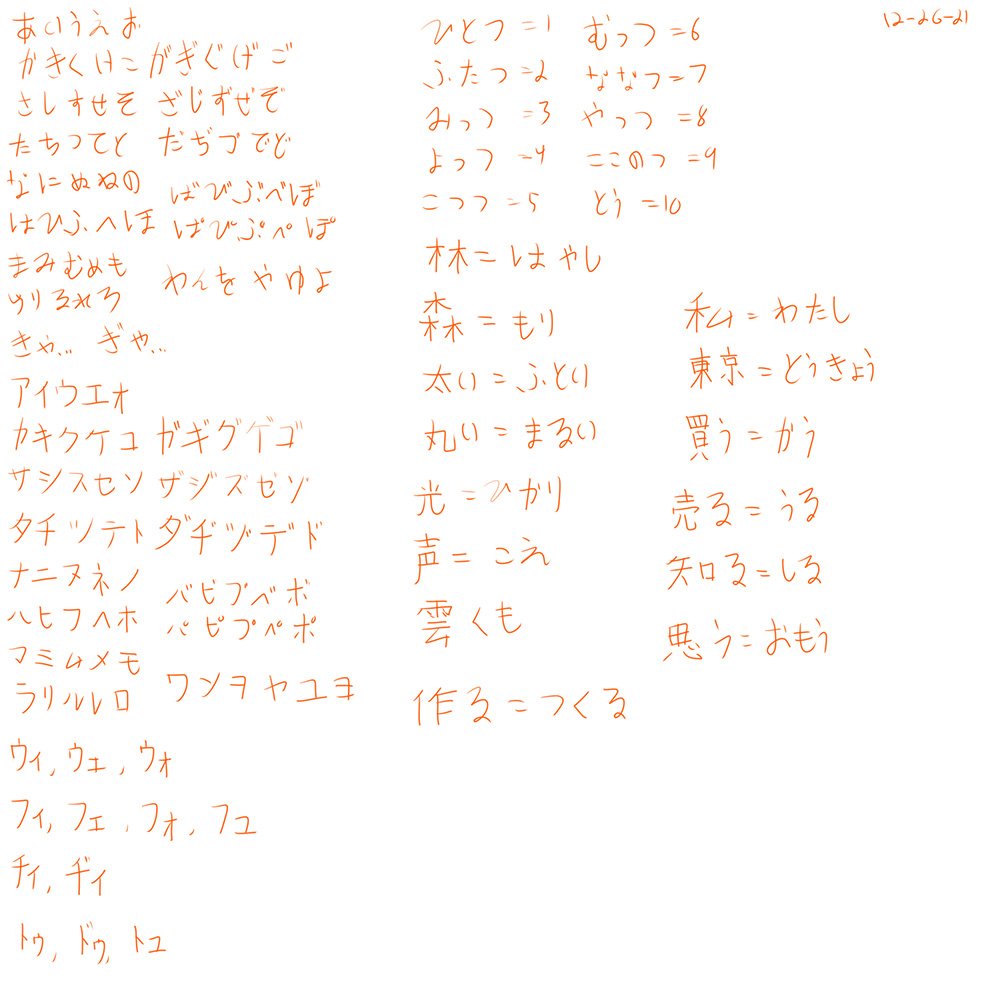 12-26-21
あいうえお
かきくけこ がぎぐげご
さしすせそ ざじずぜぞ
たちつてと だぢづでど
なにぬねの
ばびぶべぼ
はひふへほ ぱぴぷぺぽ
まみむめも
わんを やゆよ
らりるれろ
きゃ... ぎゃ...
アイウエオ
カキクケコ ガギグゲゴ
サシスセソ ザジズゼゾ
タチツテト ダヂヅデド
ナニヌネノ
バビブベボ
ハヒフヘホ
パピプペポ
マミムメモ
ラリルレロ ワンヲ ヤユヨ
ウィ, ウェ, ウォ
フィ, フェ, フォ, フュ
チィ, ヂィ
トゥ, ドゥ, トュ
ひとつ=1 むっつ=6
ふたつ=2 ななつ=7
みっつ=3 やっつ=8
よっつ=4 ここのつ=9
こつつ=5 とう=10
林=はやし
森=もり
太い=ふとい
丸い=まるい
光=ひかり
声=こえ
雲くも
作る=つくる
私=わたし
東京=とうきょう
買う=かう
売る=うる
知る=しる
思う=おもう